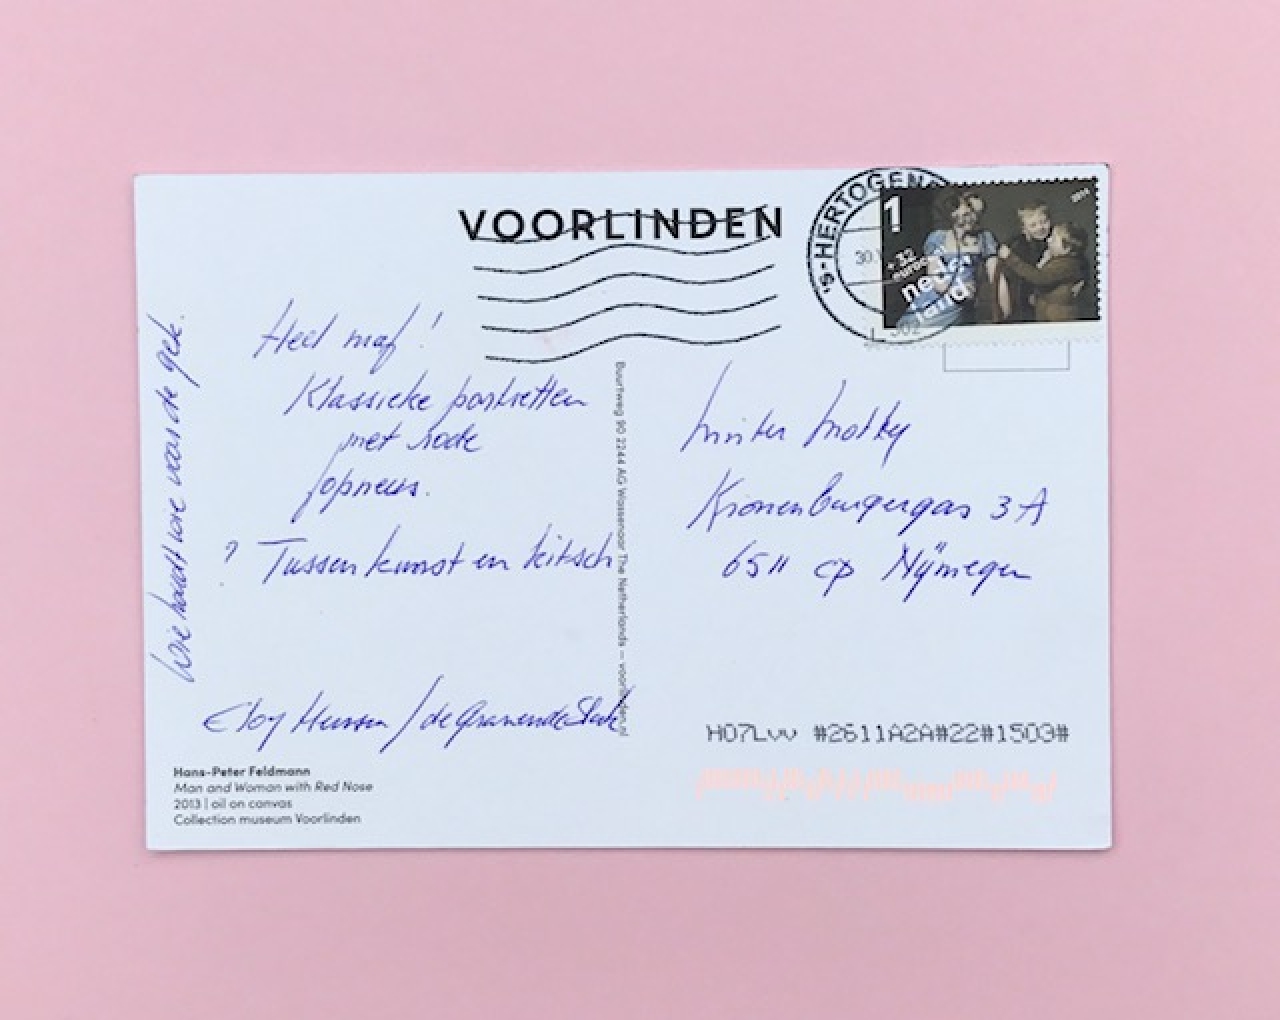 VOORLINDEN
'S-HERTOGEN
30.
L 302
1
2014
+ ,32
euro
neder
land
Heel maf!
Klassieke portretten
met rode
fopneus.
? Tussen kunst en kitsch
Wie houdt wie voor de gek.
Eloy
Hans-Peter Feldmann
Man and Woman with Red Nose
2013 | oil on canvas
Collection museum Voorlinden
Buurtweg 90 2244 AG Wassenaar The Netherlands – voorlinden.nl
Mister Motley
Kronenburgergas 3A
6511 CP Nijmegen
H07Lvv #2611A2A#22#1503#